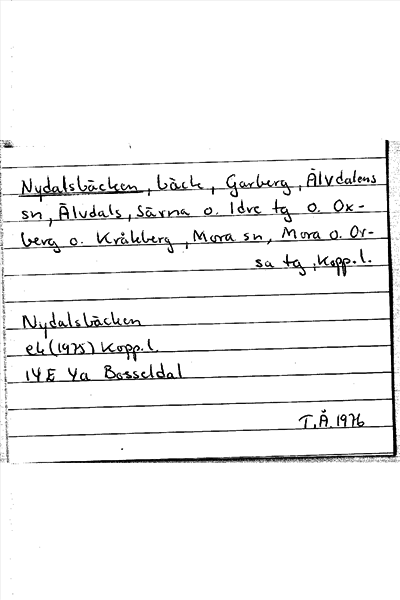 Nydalsbäcken, bäck, Garberg, Älvdalens
sn, Älvdals, Särna o. Idre tg o. Ox-
berg o. Kråkberg, Mora sn, Mora o. Or-
sa tg, Kopp. l.
Nydalsbäcken
ek (1975) Kopp. l.
14E 4a Bosseldal
T.Å. 1976